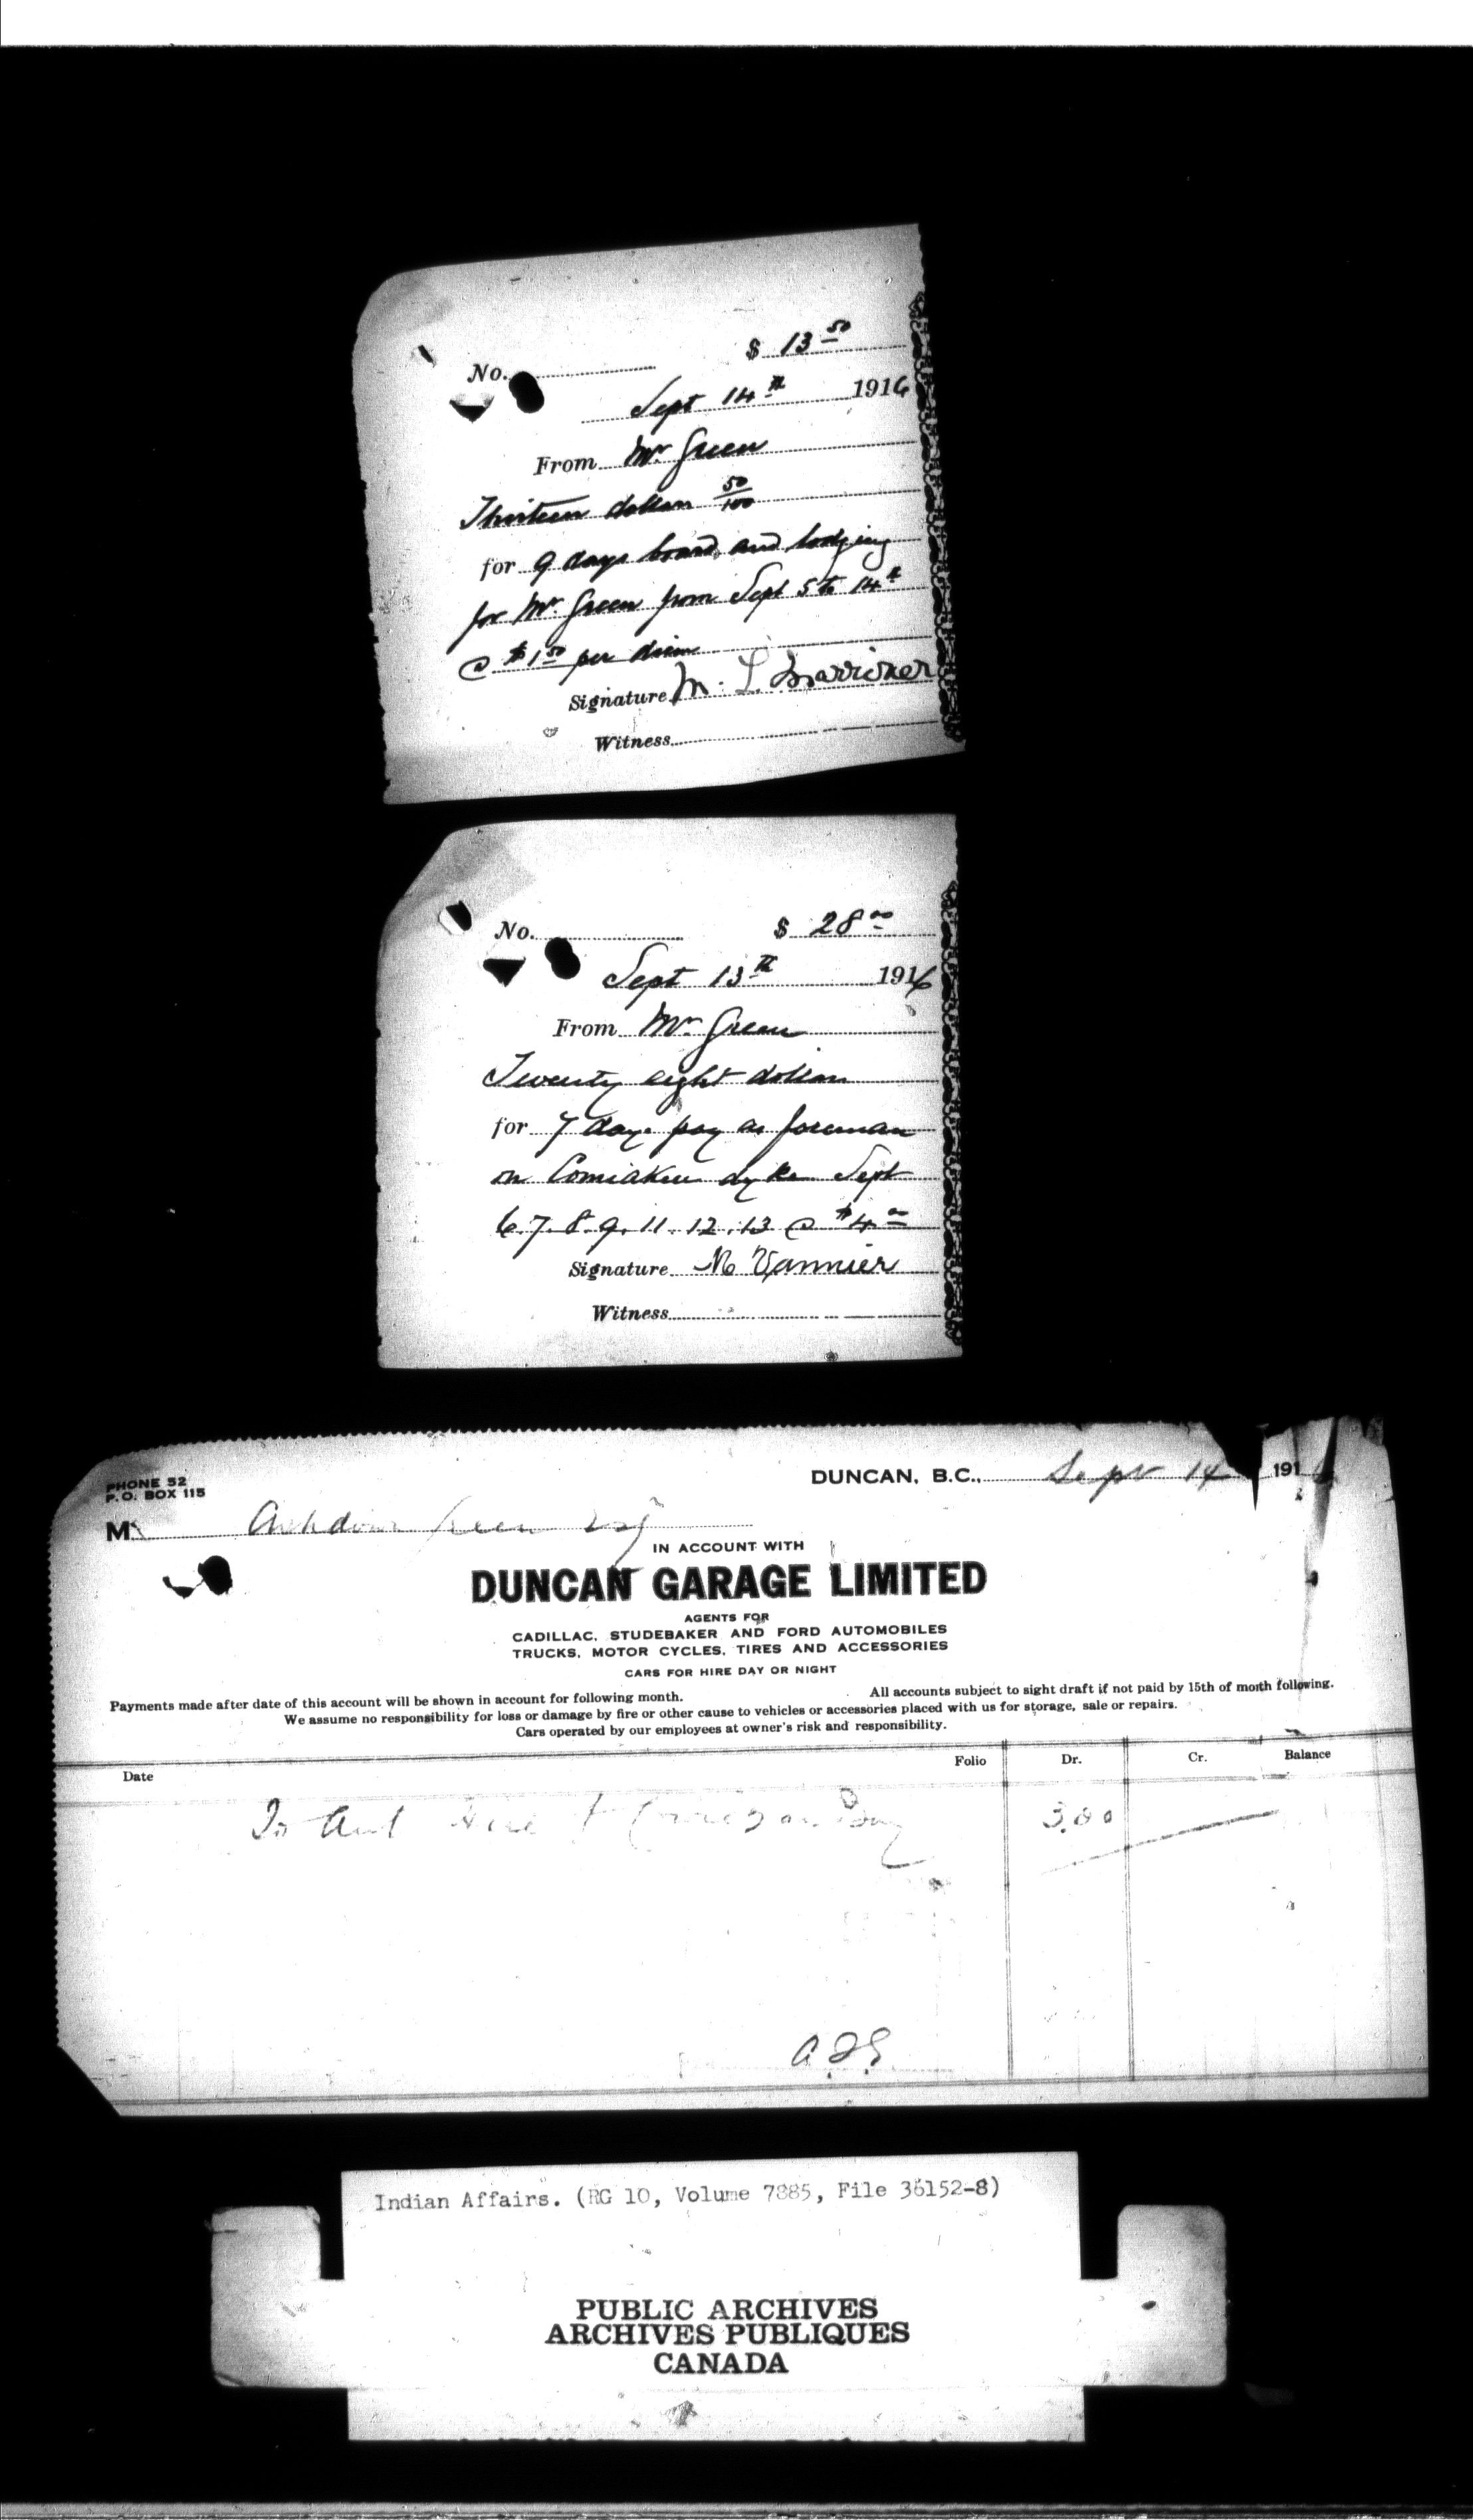 $ 13 50
No.
Sept 14th 1916
From Mr. Green
Thirteen dollars 50/100
for 9 days board and lodging
for Mr. Green from Sept 5 to 14th
@ $1 50 per diem
Signature M. L.
Witness
No. $ 28 00
Sept 13th 1916
From Mr. Green
Twenty eight dollars
for 7 days pay as foreman
on Comiaken dyke Sept
6. 7. 8. 9. 11. 12. 13 @ $4 00
Signature Vannier
Witness
PHONE 52
P.O. BOX 115
DUNCAN, B.C., Sept 14 191
M Ashdown Green Esq
IN ACCOUNT WITH
DUNCAN GARAGE LIMITED
AGENTS FOR
CADILLAC, STUDEBAKER AND FORD AUTOMOBILES
TRUCKS, MOTOR CYCLES, TIRES AND ACCESSORIES
CARS FOR HIRE DAY OR NIGHT
Payments made after date of this account will be shown in account for following month. All accounts subject to sight draft if not paid by 15th of month following.
We assume no responsibility for loss or damage by fire or other cause to vehicles or accessories placed with us for storage, sale or repairs.
Cars operated by our employees at owner's risk and responsibility.
Date Folio Dr. Cr. Balance
To Aut Hire Bay 3.00
Indian Affairs. (RG 10, Volume 7885, File 36152-8)
PUBLIC ARCHIVES
ARCHIVES PUBLIQUES
CANADA